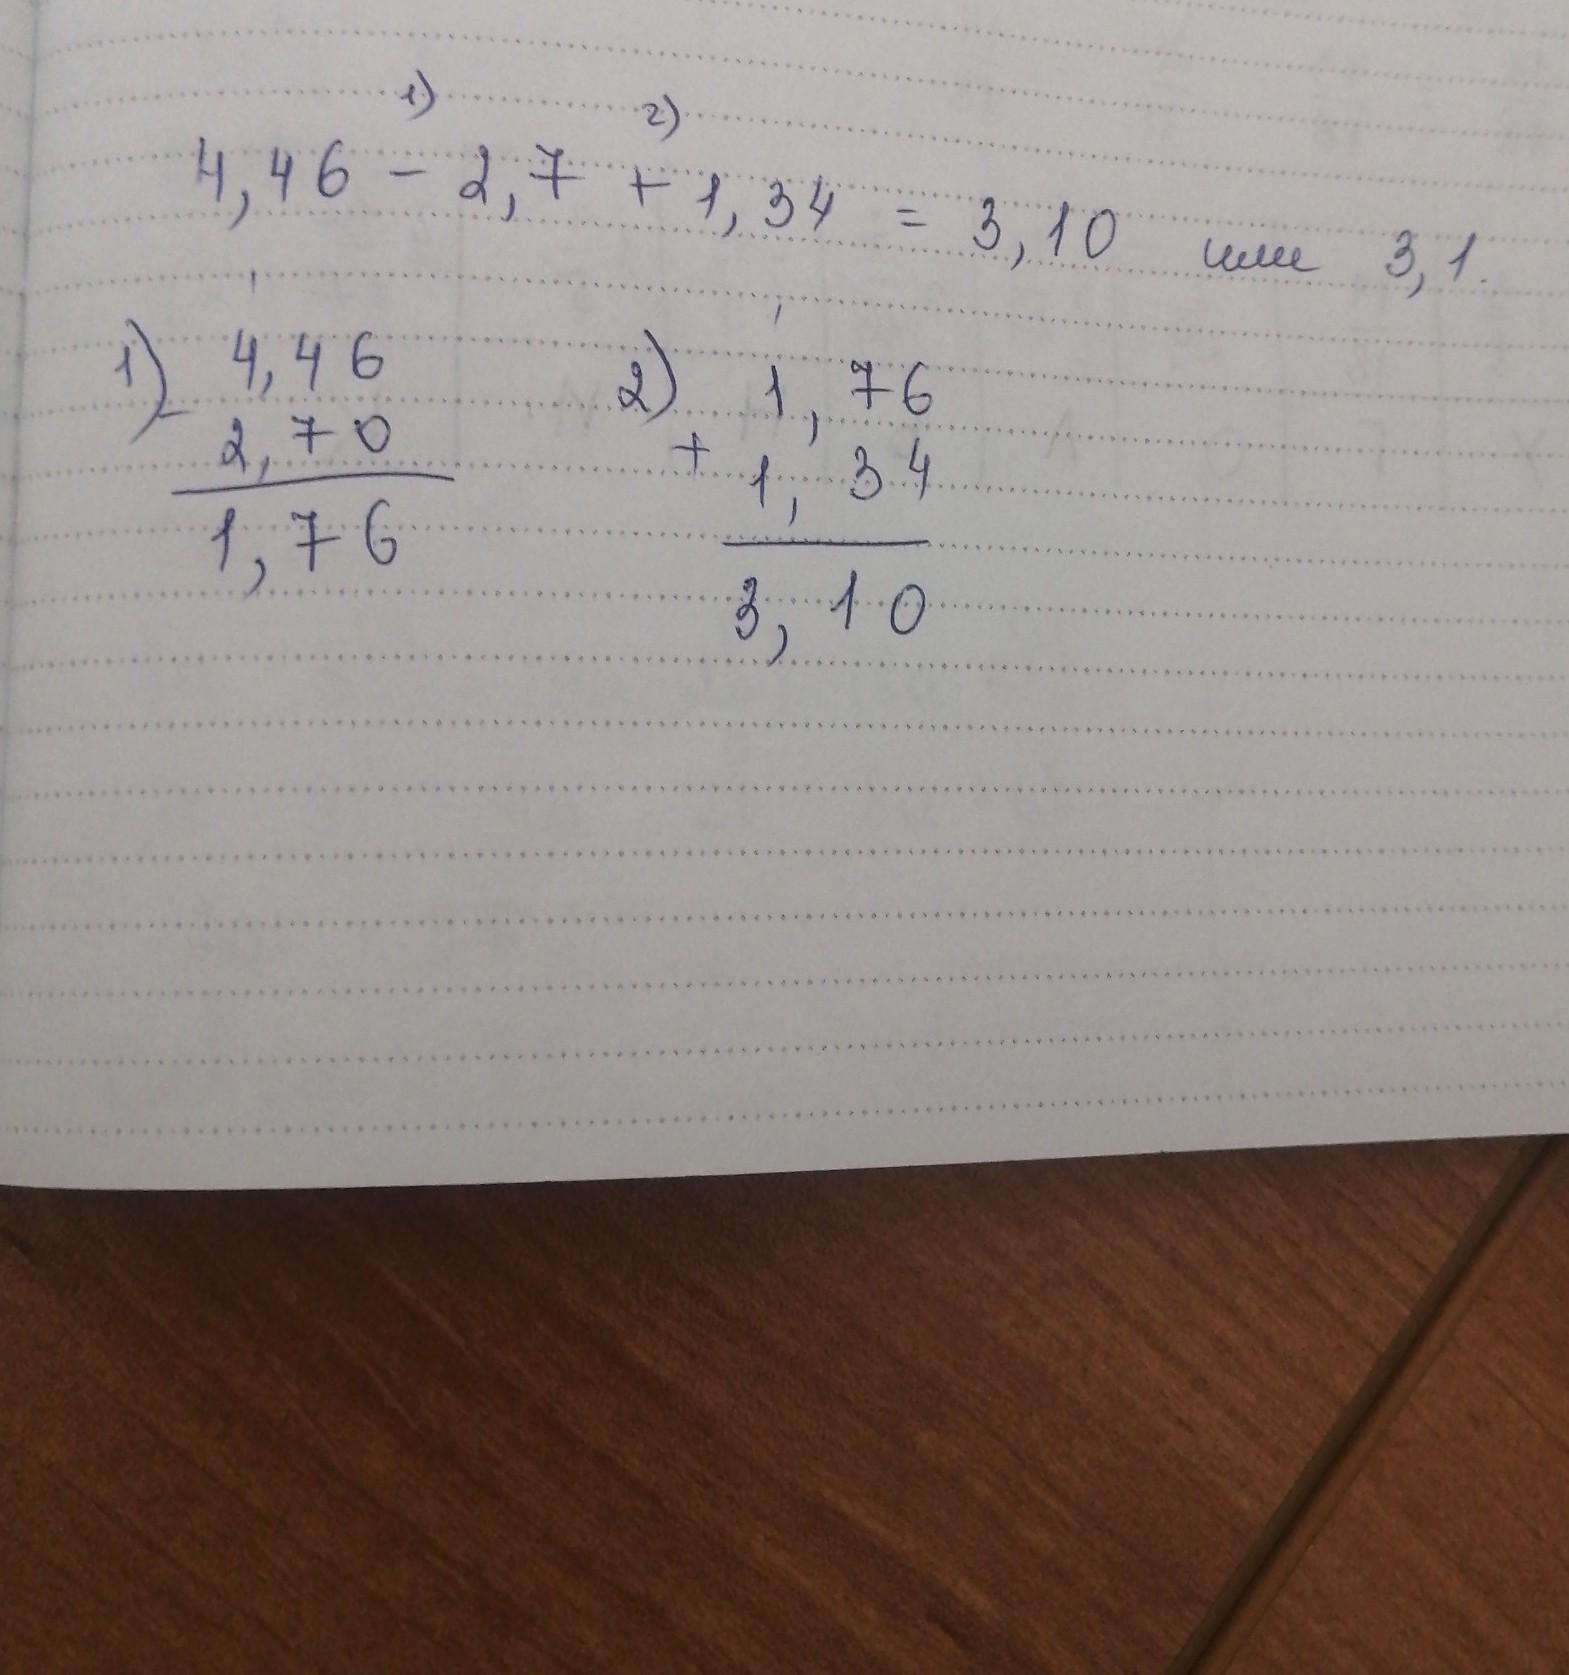 1) 2)
4,46 - 2,7 + 1,34 = 3,10 или 3,1.
1) - 4,46
2,70
1,76
2) 1,76
+ 1,34
3,10